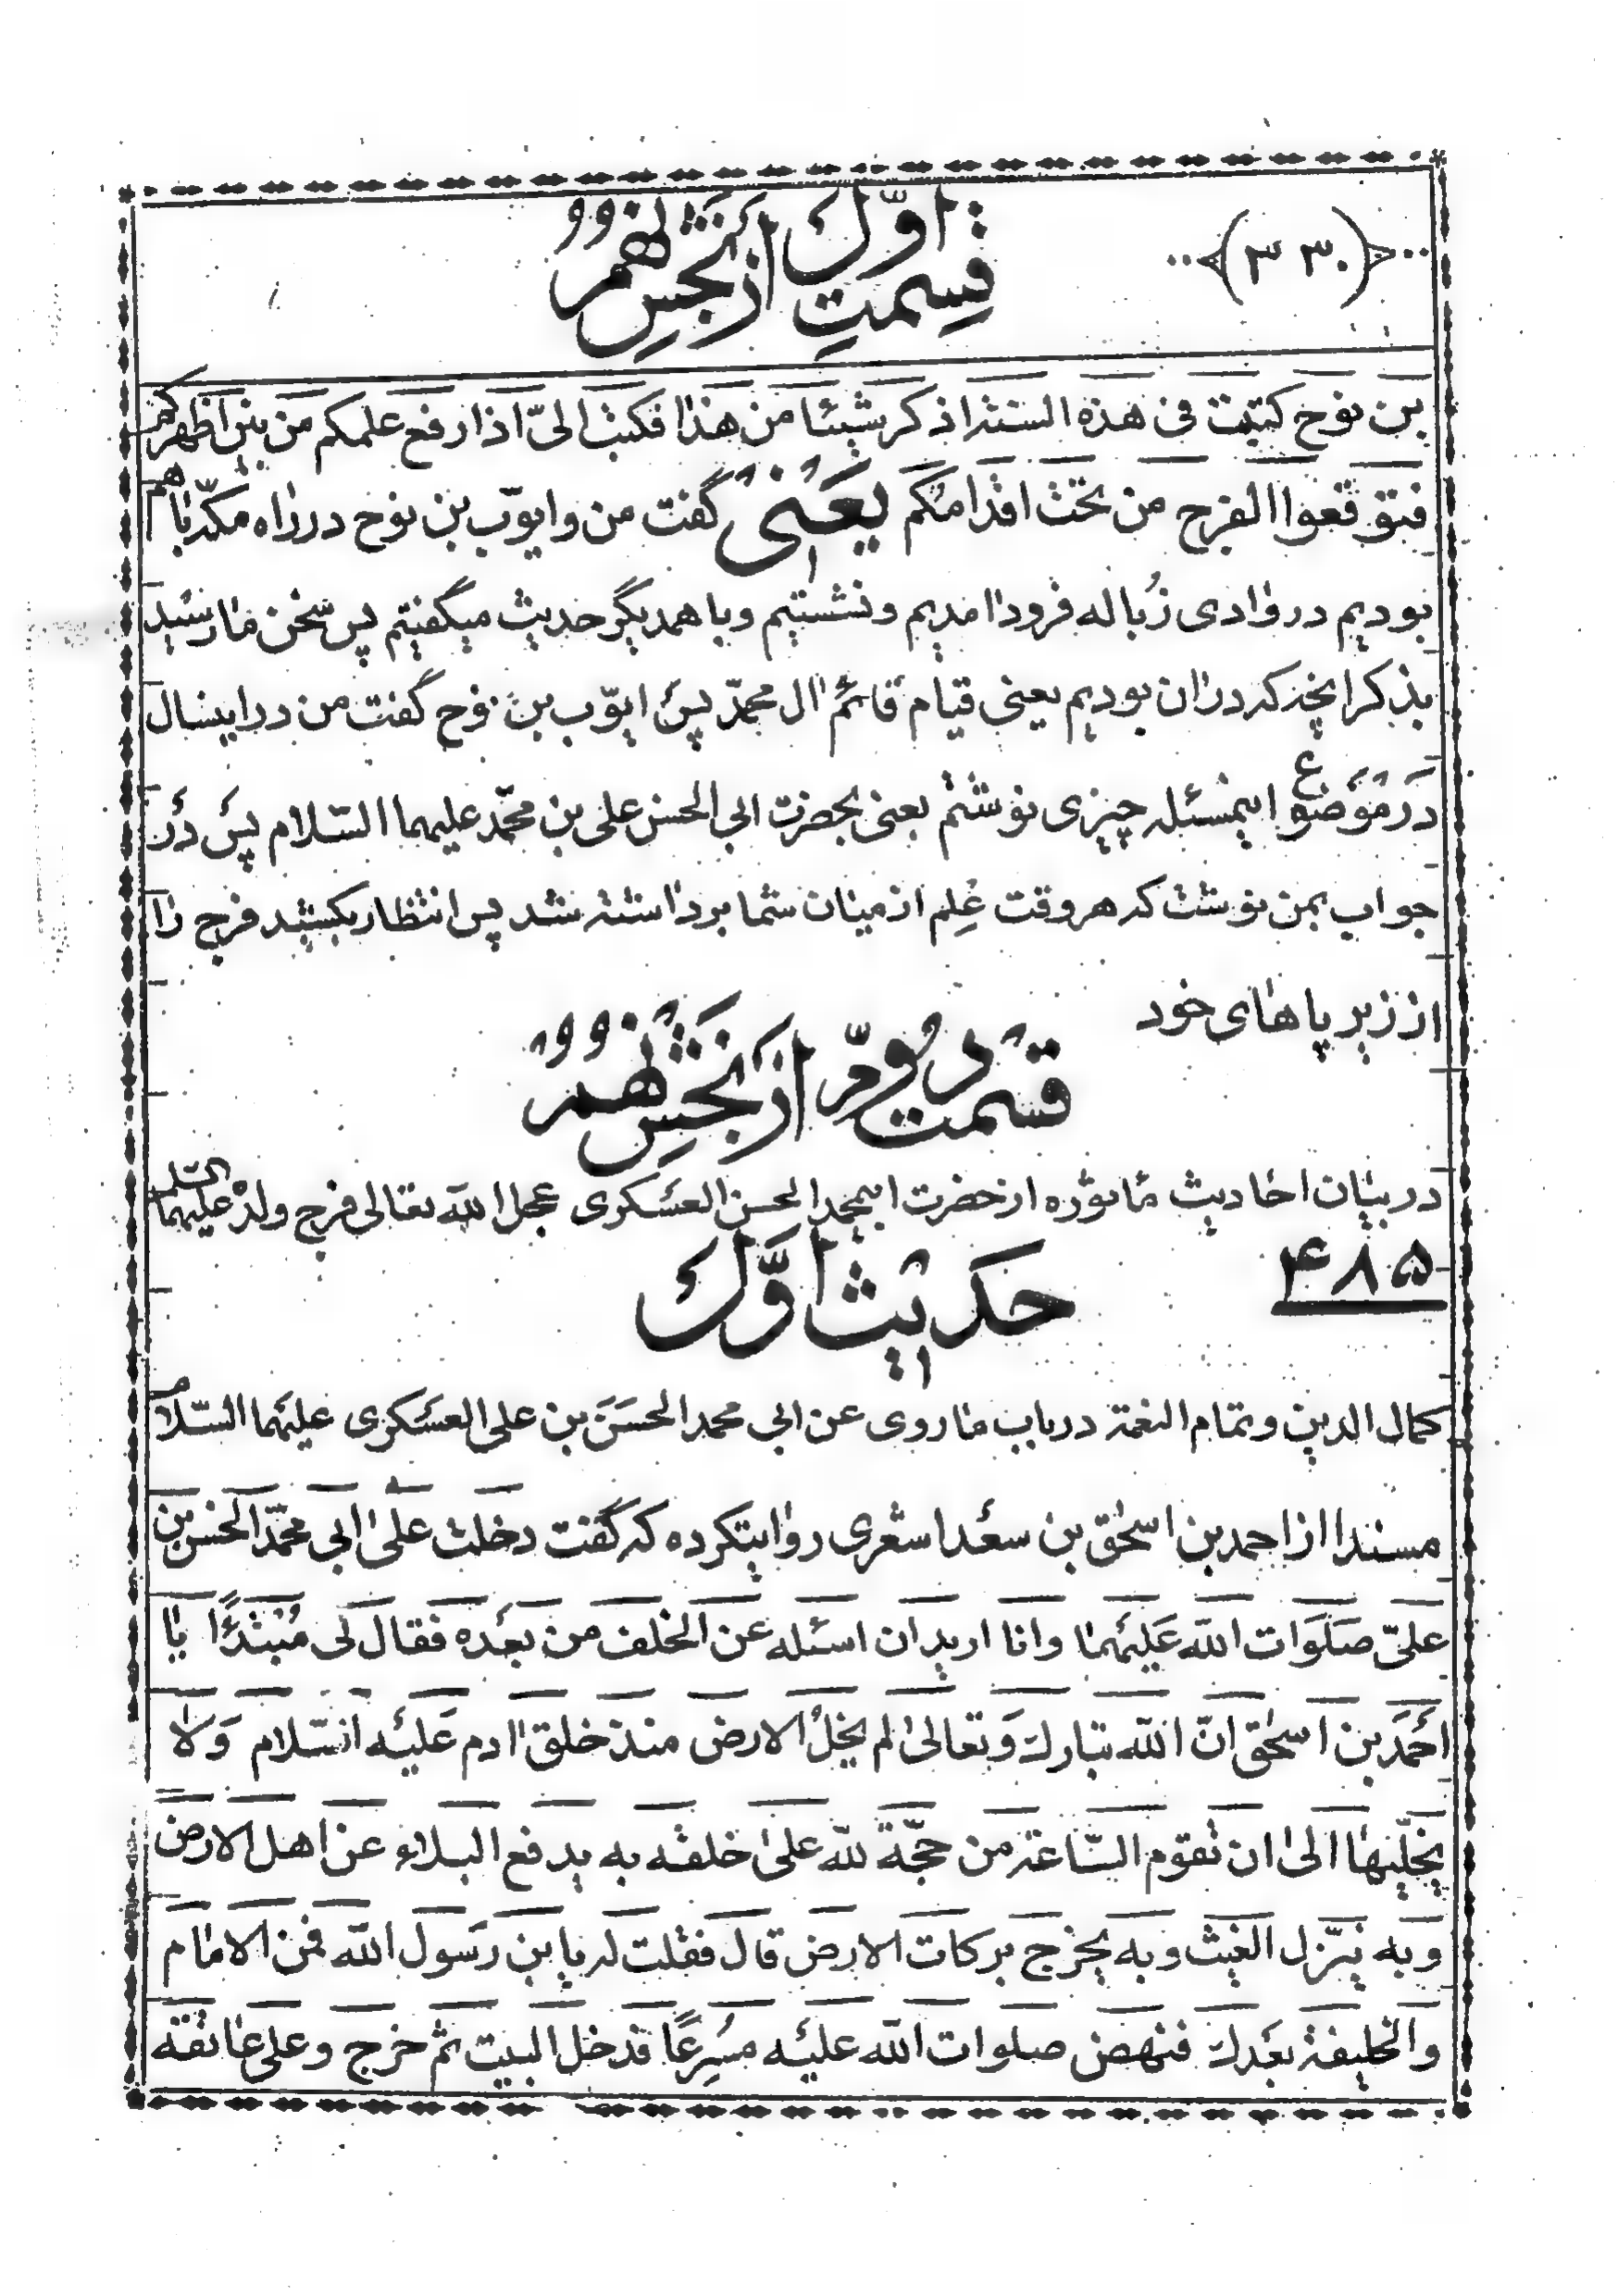 ﴿۳۳۰﴾
قسمتِ اوّل از بخشِ نهم
بن نوح کتبت فی هذه السنة اذکر شیئا من هذا فکتب الیّ اذا رفع علمکم من بین اظهرکم
فتوقعوا الفرج من تحت اقدامکم یعنی گفت من و ایوّب بن نوح در راه مکّه باهم
بودیم در وادی زُباله فرود امدیم و نشستیم و با همدیگر حدیث میگفتیم پس سخن ما رسید
بذکر انچه که در ان بودیم یعنی قیام قائم ال محمّد پس ایّوب بن نوح گفت من در اینسال
در موضوع اینمسئله چیزی نوشتم یعنی بحضرت ابی الحسن علی بن محمّد علیهما السّلام پس در
جواب بمن نوشت که هر وقت عِلم از میان شما برداشته شد پس انتظار بکشید فرج را
از زیر پاهای خود
قسمت دوّم از بخشِ نهم
در بیان احادیث ماثوره از حضرت ابیمحمد الحسن العسکری عجل الله تعالی فرج ولده علیهما السّلام
۴۸۵
حدیث اوّل
کمال الدین و تمام النعمة در باب ما روی عن ابی محمد الحسن بن علی العسکری علیهما السّلام
مسندا از احمد بن اسحٰق بن سعد اشعری روایتکرده که گفت دخلت علیٰ ابی محمّد الحسن بن
علیّ صلَوات الله عَلیهما وانا ارید ان اسئله عن الخلف من بعده فقال لی مُبتدِئًا یا
احمَد بن اسحٰق انّ الله تبارك وَ تعالیٰ لم یخلُ الارض منذ خلق ادم عَلیه السّلام وَلا
یخلّیها الیٰ ان تقوم السّاعة من حجّة لله علیٰ خلقه به یدفع البلاء عن اهل الارض
وبه ینزّل الغیث وبه یخرج برکات الارض قال فقلت له یابن رَسول الله فمن الامام
والخلیفة بعدك فنهض صلوات الله علیه مسُرِعًا فدخل البیت ثم خرج وعلی عاتقه